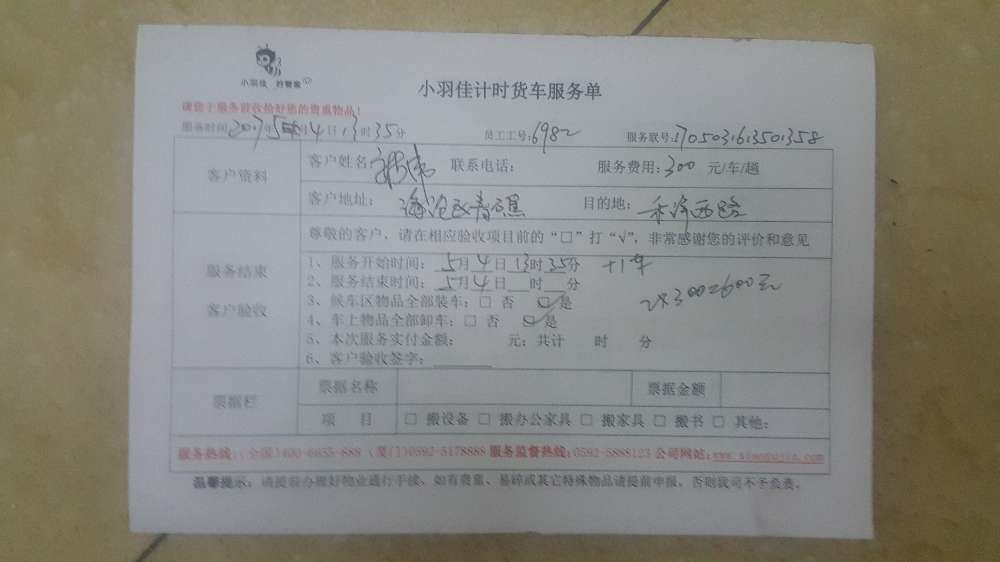 小羽佳
小羽佳计时货车服务单
请您于服务前收拾好您的贵重物品！
服务时间：2017年5月4日13时35分 员工工号：6982 服务联号：170503163501358
客户资料
客户姓名： 联系电话： 服务费用：300 元/车/趟
客户地址：海沧区青礁 目的地：禾祥西路
服务结束
客户验收
尊敬的客户，请在相应验收项目前的“□”打“√”，非常感谢您的评价和意见
1、服务开始时间：5月4日13时35分 +1车
2、服务结束时间：5月4日 时 分 2×300=600元
3、候车区物品全部装车：□ 否 ☑ 是
4、车上物品全部卸车：□ 否 ☑ 是
5、本次服务实付金额： 元；共计 时 分
6、客户验收签字：
票据栏
票据名称 票据金额
项 目 □ 搬设备 □ 搬办公家具 □ 搬家具 □ 搬书 □ 其他：
服务热线：(全国)400-6655-888 (厦门)0592-5178888 服务监督热线：0592-5888123 公司网站：www.xiaoyujia.com
温馨提示：请提前办理好物业通行手续，如有贵重、易碎或其它特殊物品请提前申报，否则我司不予负责。